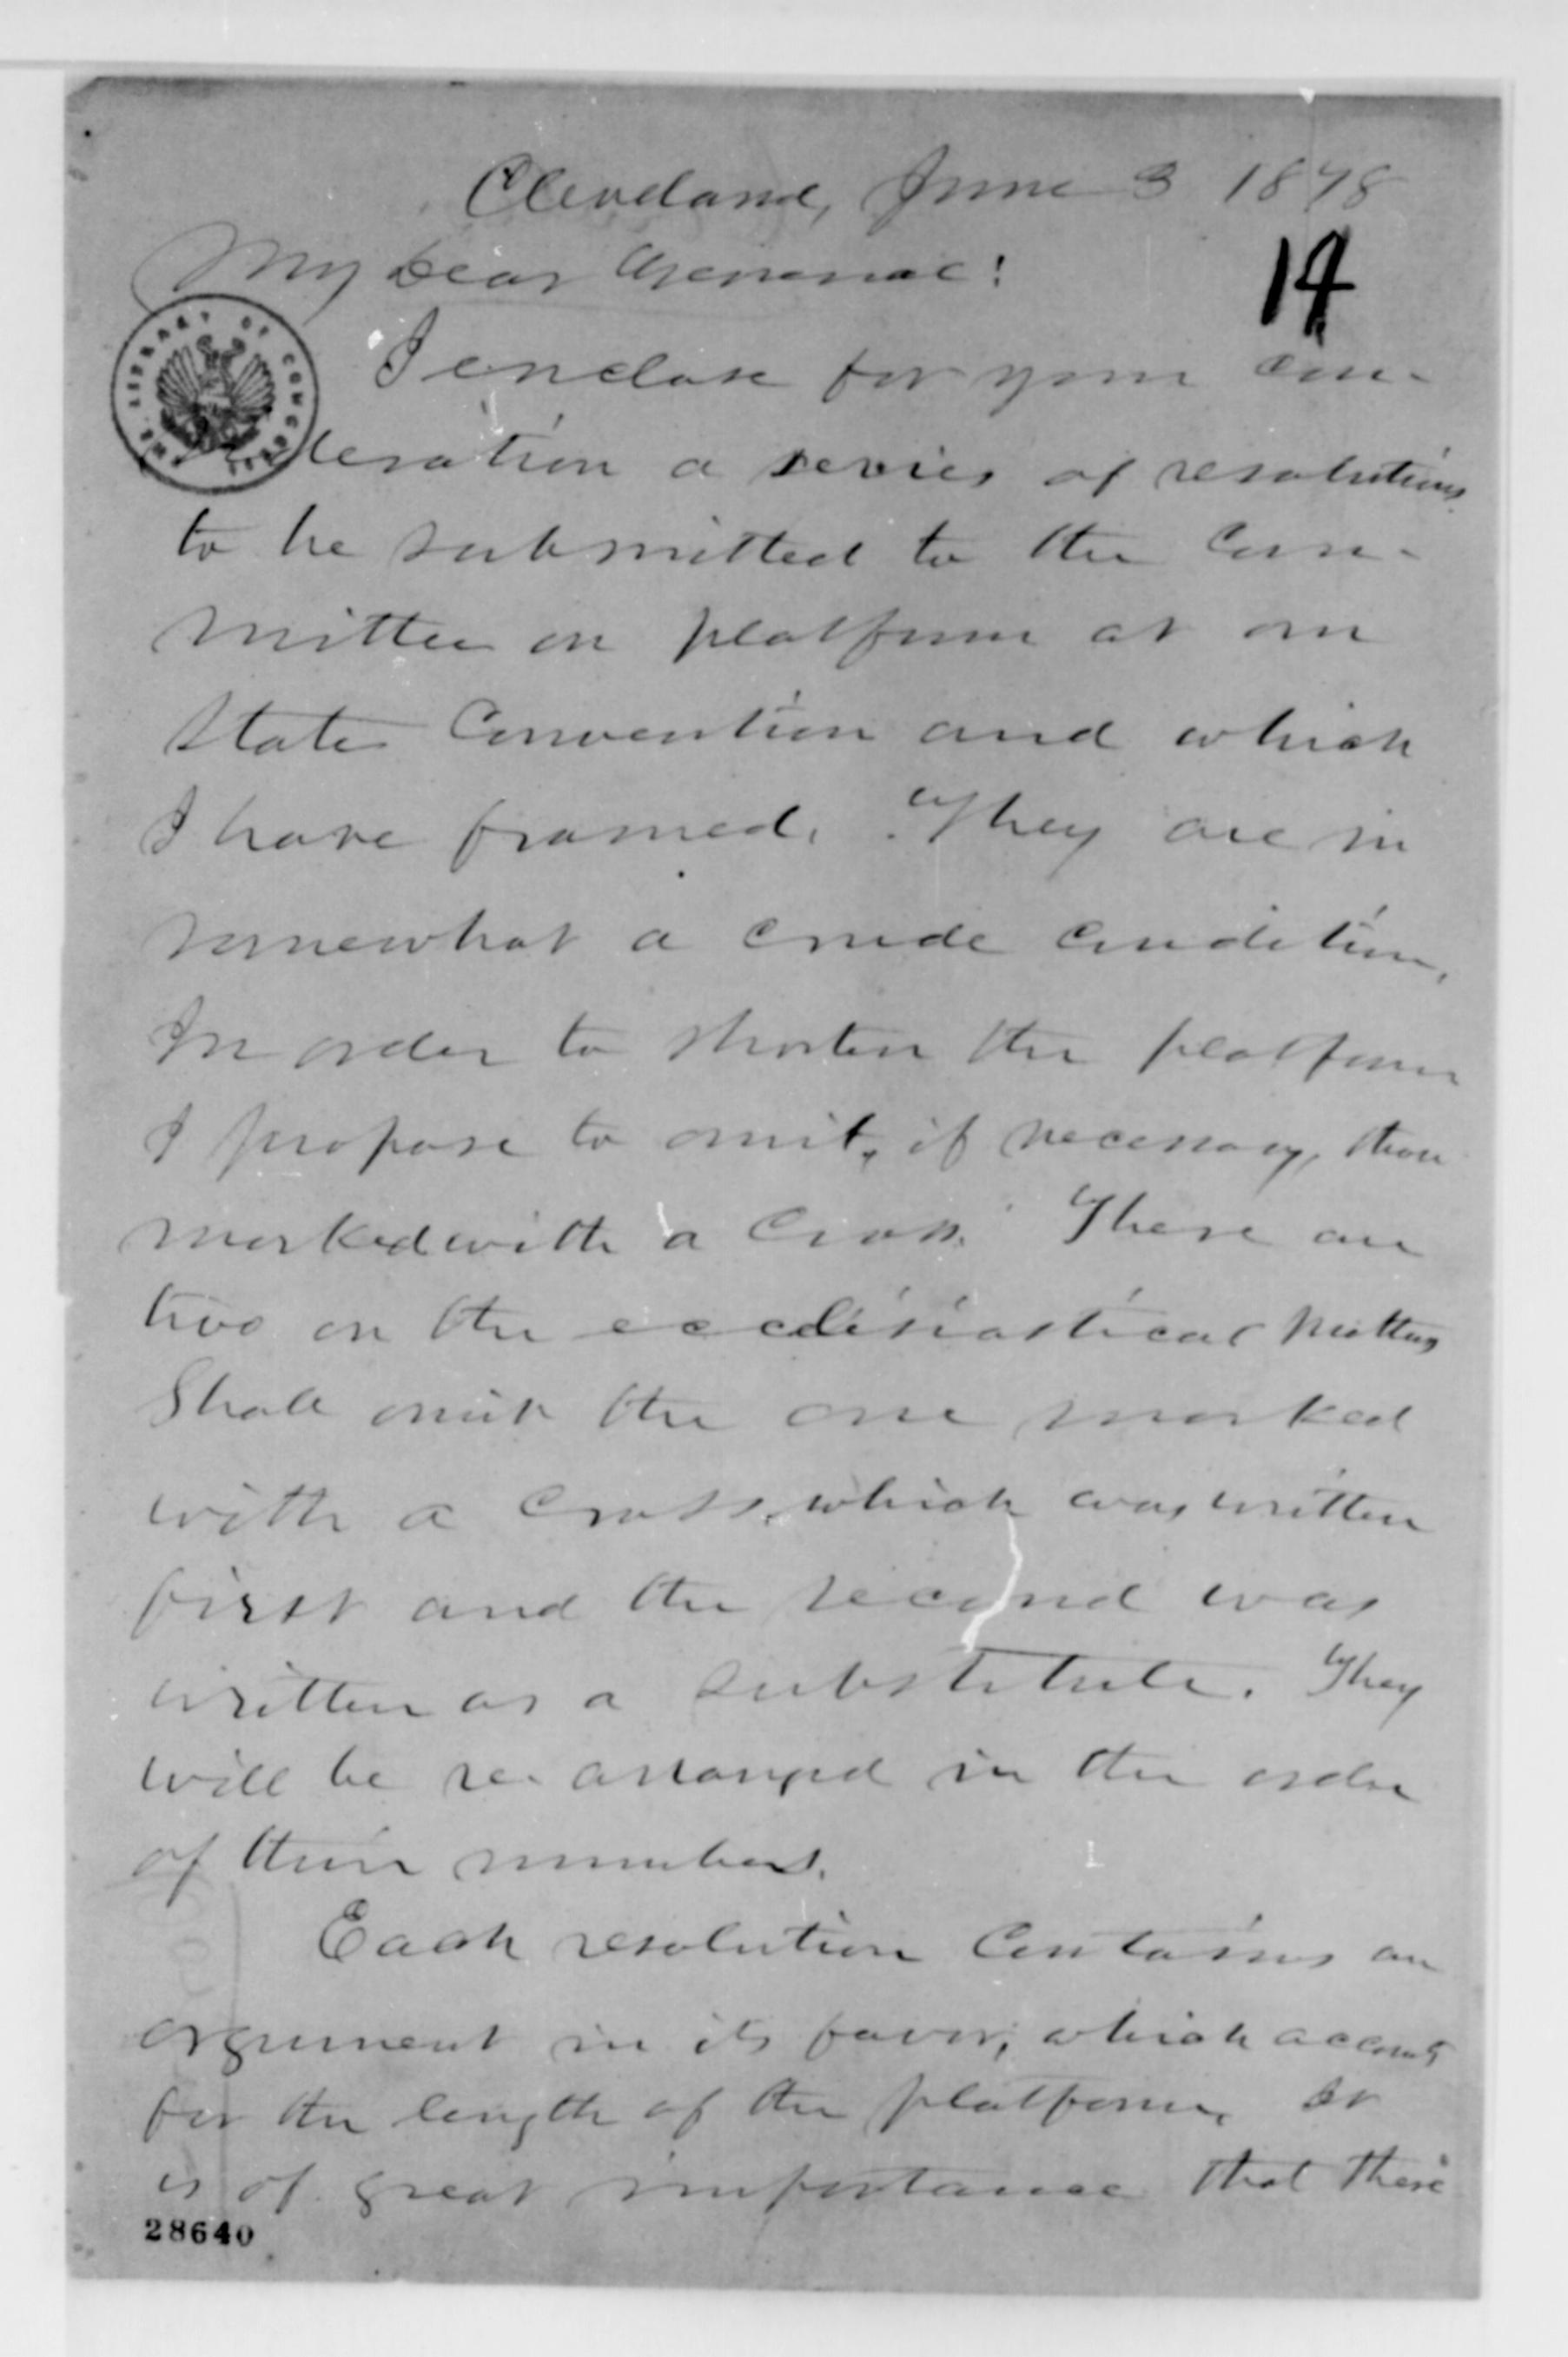 Cleveland, June 3 1878
My Dear General!
14
I enclose for your con-
sideration a series of resolutions
to be submitted to the Com-
mittee on platform at our
State Convention and which
I have framed. They are in
somewhat a crude condition.
In order to shorten the platform
I propose to omit, if necessary, those
marked with a cross. There are
two on the ecclisiastical matters
Shall omit the one marked
with a cross, which was written
first and the second was
written as a substitute. They
will be re-arranged in the order
of their numbers.
Each resolution contains an
argument in its favor, which accounts
for the length of the platform, It
is of great importance that there
THE LIBRARY OF CONGRESS
28640